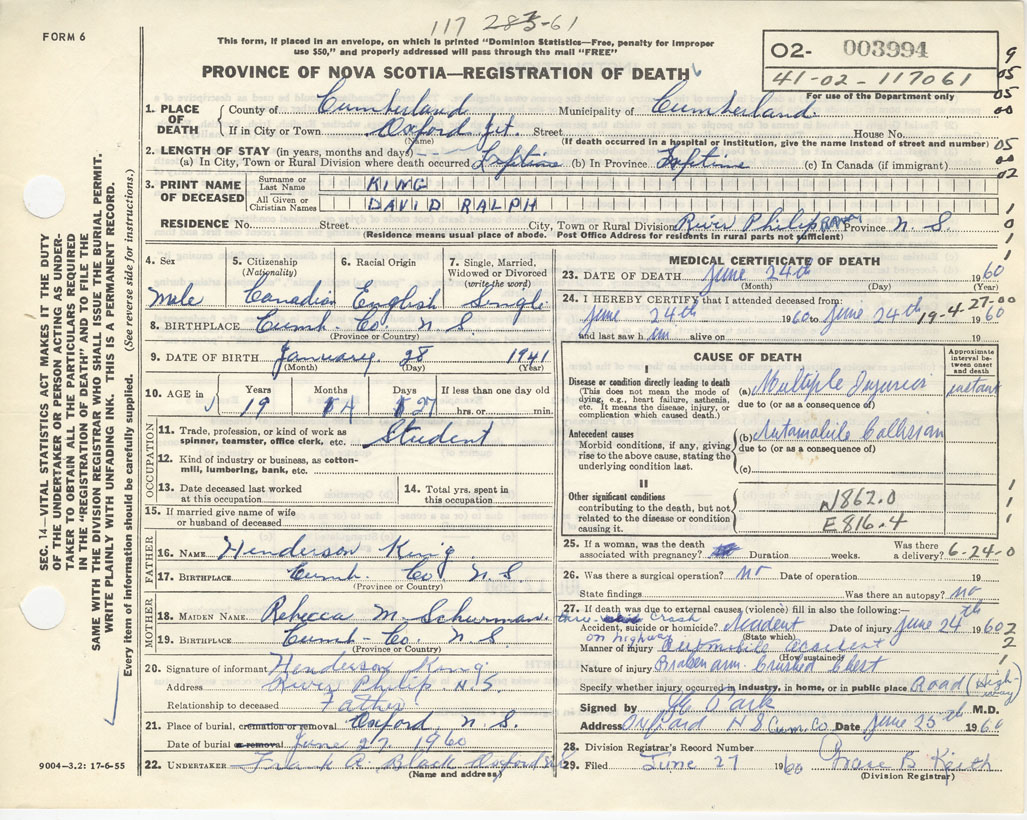 117 283-61
FORM 6
This form, if placed in an envelope, on which is printed "Dominion Statistics—Free, penalty for improper
use $50," and properly addressed will pass through the mail "FREE"
O2- 003994
41-02-117061
For use of the Department only
PROVINCE OF NOVA SCOTIA—REGISTRATION OF DEATH
1. PLACE OF DEATH
County of Cumberland Municipality of Cumberland
If in City or Town Oxford Jct. Street House No.
(Name) (If death occurred in a hospital or Institution, give the name instead of street and number)
2. LENGTH OF STAY (in years, months and days)
(a) In City, Town or Rural Division where death occurred Lifetime (b) In Province Lifetime (c) In Canada (if immigrant)
3. PRINT NAME OF DECEASED
Surname or Last Name KING
All Given or Christian Names DAVID RALPH
RESIDENCE No. Street City, Town or Rural Division River Philip Province N. S.
(Residence means usual place of abode. Post Office Address for residents in rural parts not sufficient)
4. Sex Male
5. Citizenship (Nationality) Canadian
6. Racial Origin English
7. Single, Married, Widowed or Divorced (write the word) Single
8. BIRTHPLACE Cumb. Co. N S
(Province or Country)
9. DATE OF BIRTH January 28 1941
(Month) (Day) (Year)
10. AGE in Years 19 Months 4 Days 27 If less than one day old hrs. or min.
OCCUPATION
11. Trade, profession, or kind of work as spinner, teamster, office clerk, etc. Student
12. Kind of industry or business, as cotton-mill, lumbering, bank, etc.
13. Date deceased last worked at this occupation
14. Total yrs. spent in this occupation
15. If married give name of wife or husband of deceased
FATHER
16. NAME Henderson King
17. BIRTHPLACE Cumb. Co N. S
(Province or Country)
MOTHER
18. MAIDEN NAME Rebecca M. Schurman
19. BIRTHPLACE Cumb- Co. N S
(Province or Country)
20. Signature of informant Henderson King
Address River Philip N.S.
Relationship to deceased Father
21. Place of burial, cremation or removal Oxford, N. S.
Date of burial or removal June 27, 1960
22. UNDERTAKER Frank A. Black Oxford
(Name and address)
MEDICAL CERTIFICATE OF DEATH
23. DATE OF DEATH June 24th 1960
(Month) (Day) (Year)
24. I HEREBY CERTIFY that I attended deceased from:
19-4-27-00
June 24th 1960 to June 24th 1960
and last saw h im alive on 19
CAUSE OF DEATH
Approximate interval between onset and death
I
Disease or condition directly leading to death
(This does not mean the mode of dying, e.g., heart failure, asthenia, etc. It means the disease, injury, or complication which caused death.)
(a) Multiple Injuries instant
due to (or as a consequence of)
Antecedent causes
Morbid conditions, if any, giving rise to the above cause, stating the underlying condition last.
(b) Automobile Collision
due to (or as a consequence of)
(c)
II
Other significant conditions
contributing to the death, but not related to the disease or condition causing it.
N862.0
E816.4
25. If a woman, was the death associated with pregnancy? Duration weeks. Was there a delivery? 6-24-0
26. Was there a surgical operation? no Date of operation 19
State findings Was there an autopsy? no
27. If death was due to external causes (violence) fill in also the following:—
crash
Accident, suicide or homicide? Accident Date of injury June 24th 1960
(State which)
on highway
Manner of injury Automobile accident
(How sustained)
Nature of injury Broken arm. Crushed Chest
Specify whether injury occurred in industry, in home, or in public place Road (High-way)
Signed by Park M.D.
Address Oxford N S Cum. Co. Date June 25th 1960
28. Division Registrar's Record Number
29. Filed June 27 1960 Grace B Keith
(Division Registrar)
9
05
05
00
05
00
02
1
0
1
1
1
1
2
1
2
SEC. 14—VITAL STATISTICS ACT MAKES IT THE DUTY
OF THE UNDERTAKER OR PERSON ACTING AS UNDER-
TAKER TO OBTAIN ALL THE PARTICULARS REQUIRED
IN THE "REGISTRATION OF DEATH" AND TO FILE THE
SAME WITH THE DIVISION REGISTRAR WHO SHALL ISSUE THE BURIAL PERMIT.
WRITE PLAINLY WITH UNFADING INK. THIS IS A PERMANENT RECORD.
Every item of information should be carefully supplied. (See reverse side for instructions.)
9004—3.2: 17-6-55